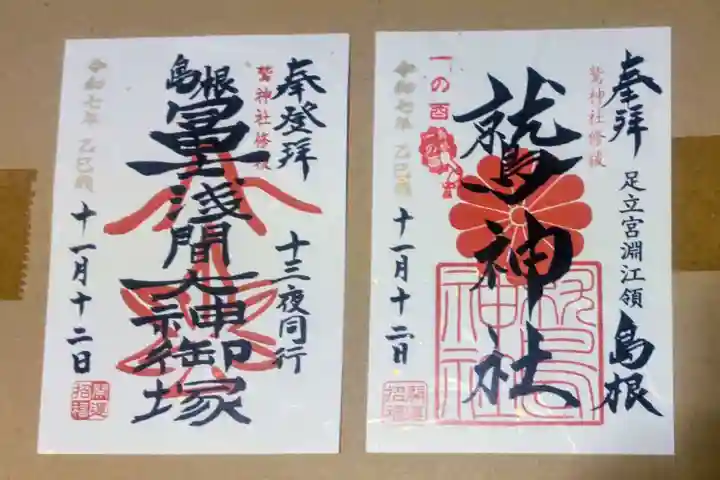 奉拝
足立宮淵江領
島根
鷲神社修復
鷲神社
一の酉
令和七年 乙巳歳
十一月十二日
開運
招福
奉登拝
十三夜同行
鷲神社修復
島根
冨士浅間大神御塚
令和七年 乙巳歳
十一月十二日
開運
招福